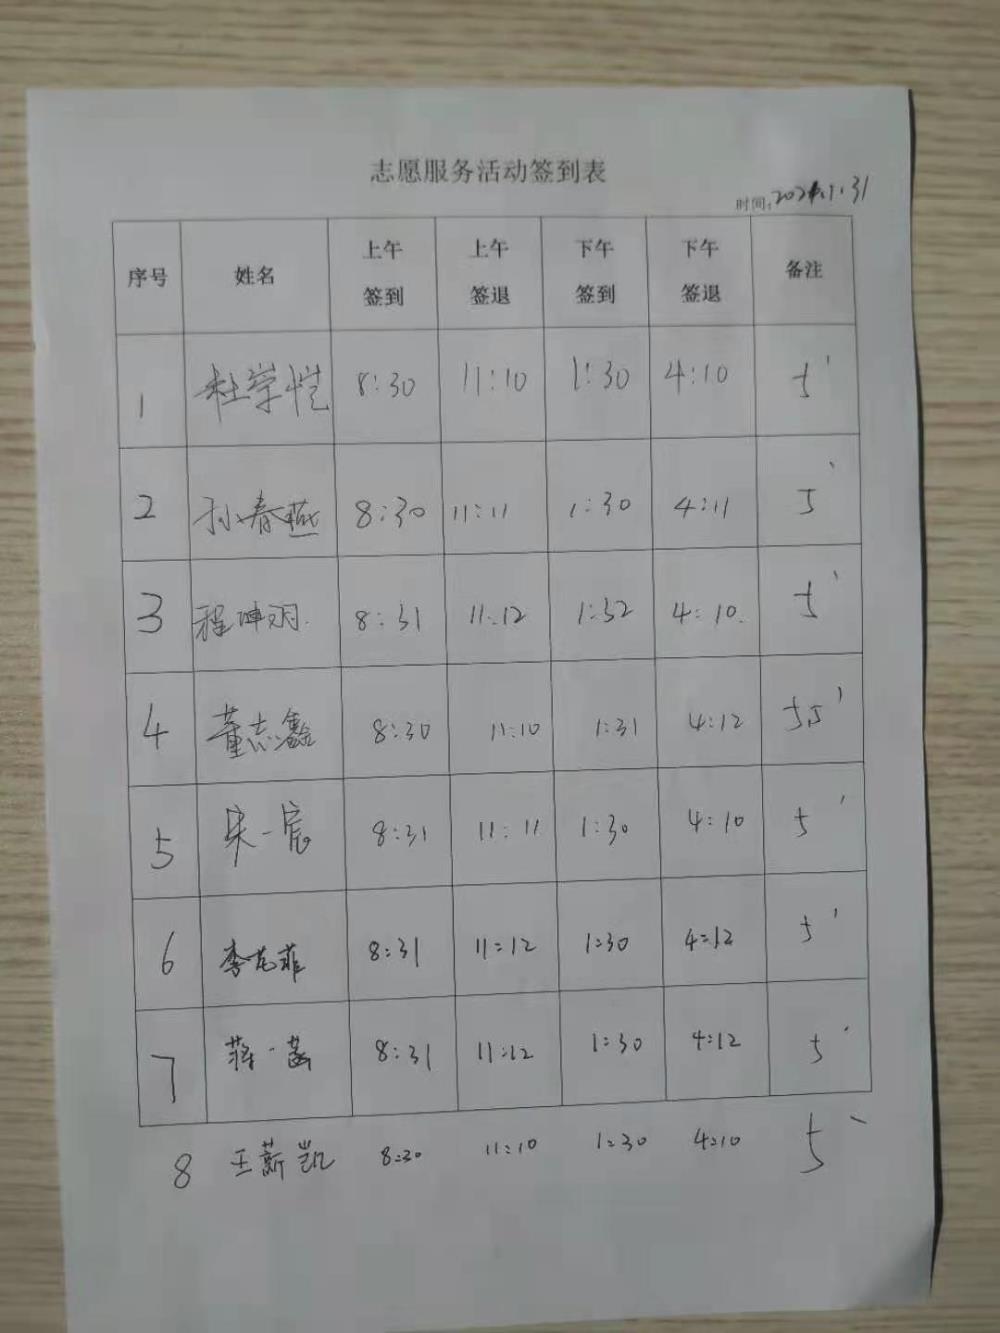 志愿服务活动签到表
时间:2021.1.31
序号 姓名 上午签到 上午签退 下午签到 下午签退 备注
1 杜学恺 8:30 11:10 1:30 4:10 5'
2 孙春燕 8:30 11:11 1:30 4:11 5'
3 程坤羽. 8:31 11:12 1:32 4:10. 5'
4 董志鑫 8:30 11:10 1:31 4:12 5.5'
5 宋一宸 8:31 11:11 1:30 4:10 5'
6 李龙菲 8:31 11:12 1:30 4:12 5'
7 蒋一菡 8:31 11:12 1:30 4:12 5'
8 王薪凯 8:30 11:10 1:30 4:10 5'